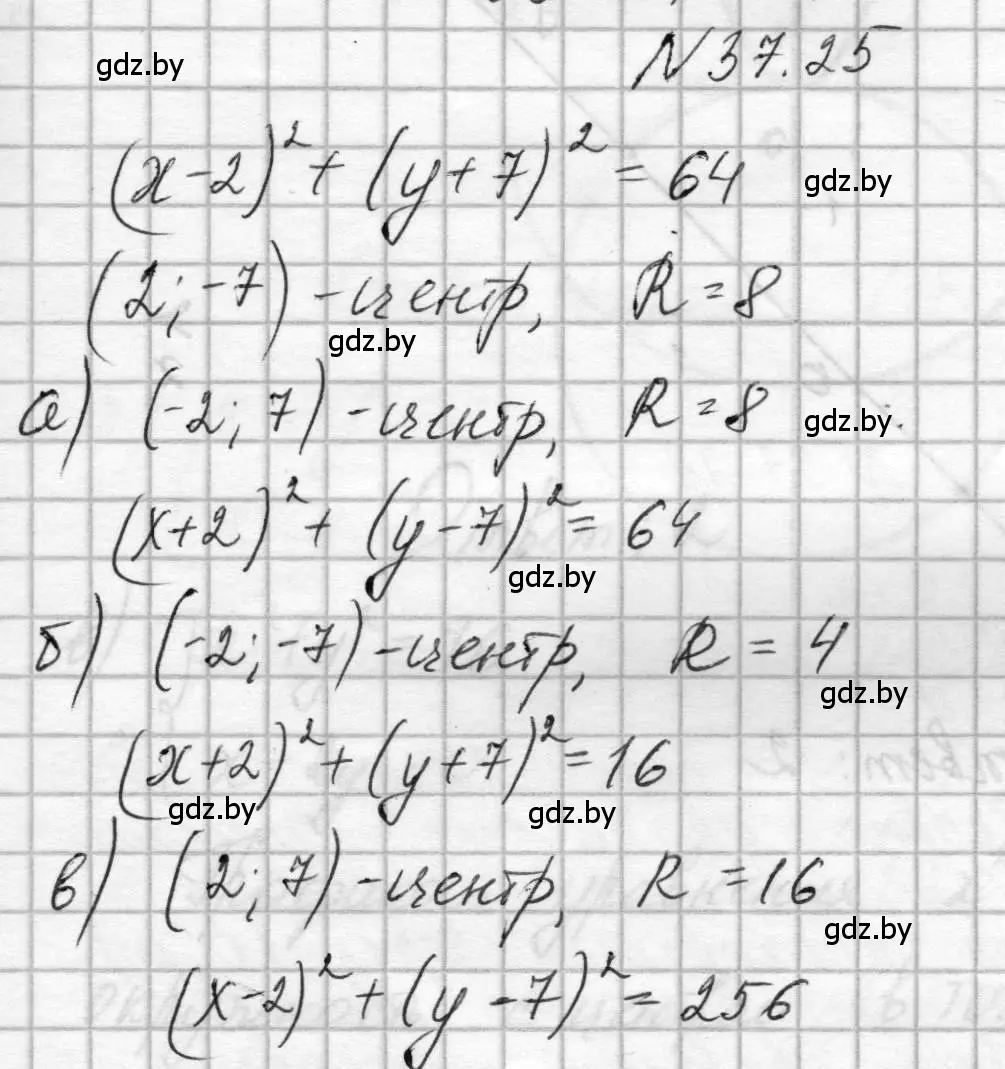 gdz.by
N 37.25
(x-2)² + (y+7)² = 64 gdz.by
(2; -7) - центр, R = 8
gdz.by
а) (-2; 7) - центр, R = 8 gdz.by
(x+2)² + (y-7)² = 64
gdz.by
б) (-2; -7) - центр, R = 4
gdz.by
(x+2)² + (y+7)² = 16
gdz.by gdz.by
в) (2; 7) - центр, R = 16
gdz.by
(x-2)² + (y-7)² = 256